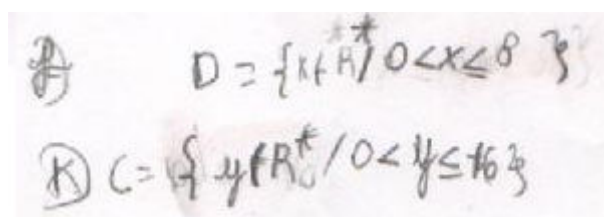 D = {x∈R*/ 0<x≤8 }
K) C = { y∈R*/0< y≤16}